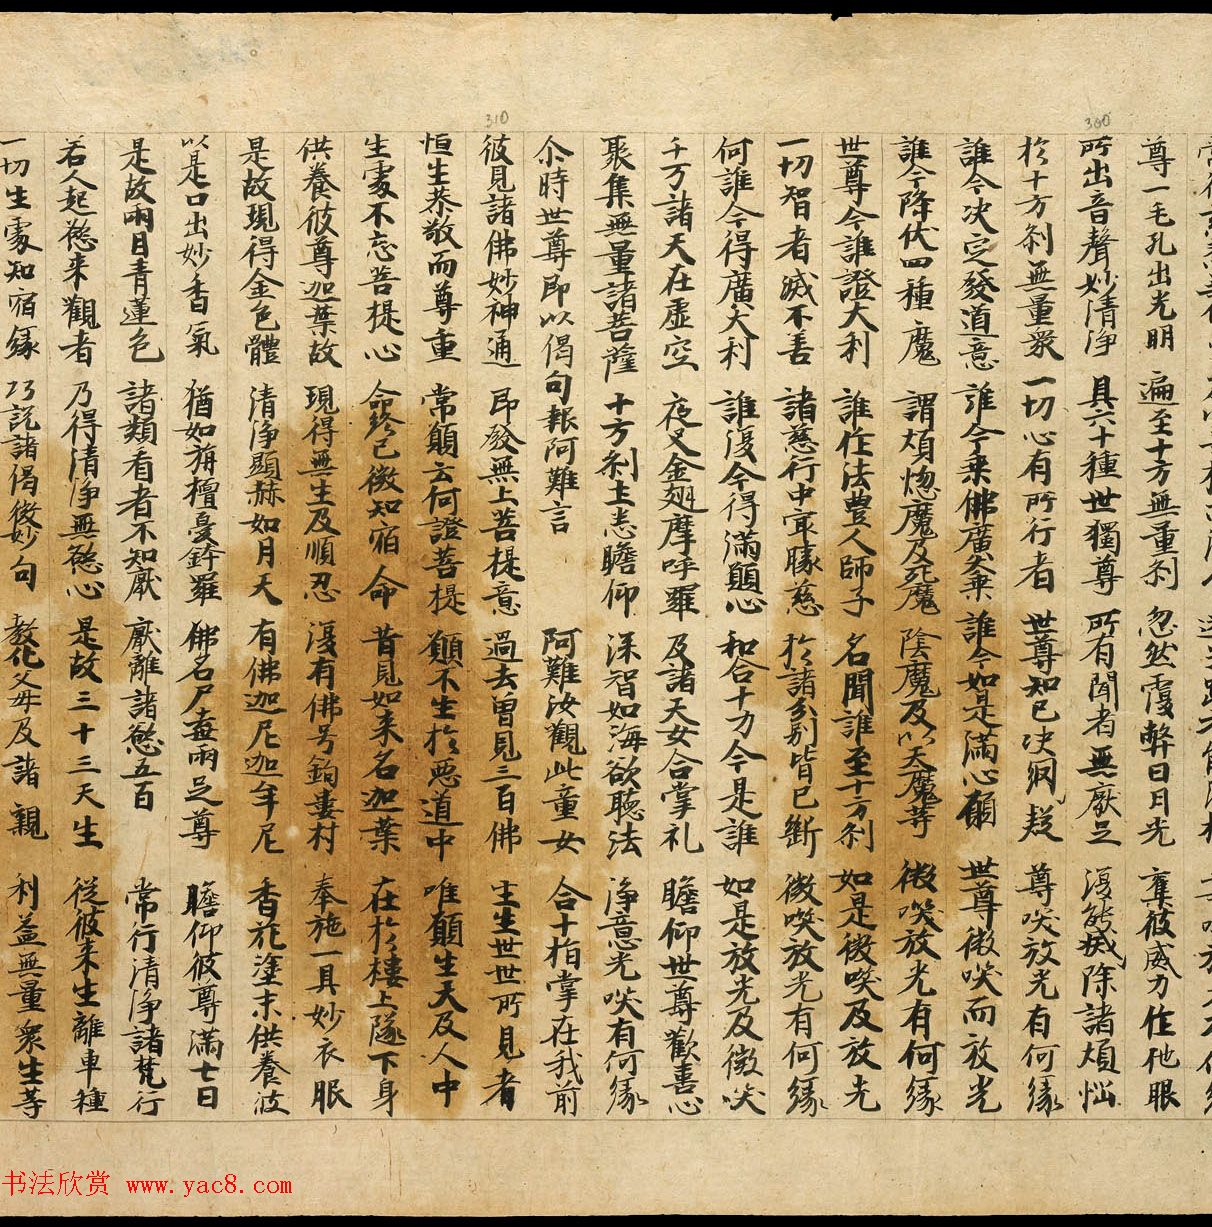 尊一毛孔出光明 遍至十方無量刹 忽然覆弊日月光 棄彼威力作他眼
所出音聲妙清净 具六十種世獨尊 所有聞者無厭足 復能滅除諸煩惱
於十方刹無量衆 一切心有所行者 世尊知已決洞疑 尊咲放光有何緣
誰今決定發道意 誰今乘佛廣大乘 誰今如是滿心願 世尊微咲而放光
誰今降伏四種魔 謂煩惚魔及死魔 陰魔及以天魔等 微咲放光有何緣
世尊今誰證大利 誰作法豊人師子 名聞誰至十方刹 如是微咲及放光
一切智者滅不善 諸慈行中㝡勝慈 於諸分别皆已斷 微咲放光有何緣
何誰今得廣大利 誰復今得滿願心 和合十力今是誰 如是放光及微咲
千万諸天在虛空 夜叉金翅摩呼羅 及諸天女合掌礼 瞻仰世尊歡喜心
聚集無量諸菩薩 十方刹土悉瞻仰 深智如海欲聽法 净意光咲有何緣
尒時世尊即以偈句報阿難言 阿難汝觀此童女 合十柏掌在我前
彼見諸佛妙神通 即發無上菩提意 過去曾見三百佛 生生世世所見者
恒生恭敬而尊重 常願云何證菩提 願不生於悪道中 唯願生天及人中
生處不忘菩提心 命終已後知宿命 昔見如来名迦葉 在於樓上墜下身
供養彼尊迦葉故 現得無生及順忍 復有佛号鉤婁村 奉施一具妙衣眼
是故現得金色體 清净顯赫如月天 有佛迦尼迦牟尼 香花塗末供養彼
以是口出妙香氣 猶如旃檀憂鉢羅 佛名尸棄兩足尊 瞻仰彼尊滿七日
是故兩目青蓮色 諸類看者不知厭 厭離諸慾五百 常行清净諸梵行
若人起慾来觀者 乃得清净無慾心 是故三十三天生 從彼来生離車種
一切生處知宿緣 巧説諸偈微妙句 教化父母及諸親 利益無量衆生等
310
300
书法欣赏 www.yac8.com